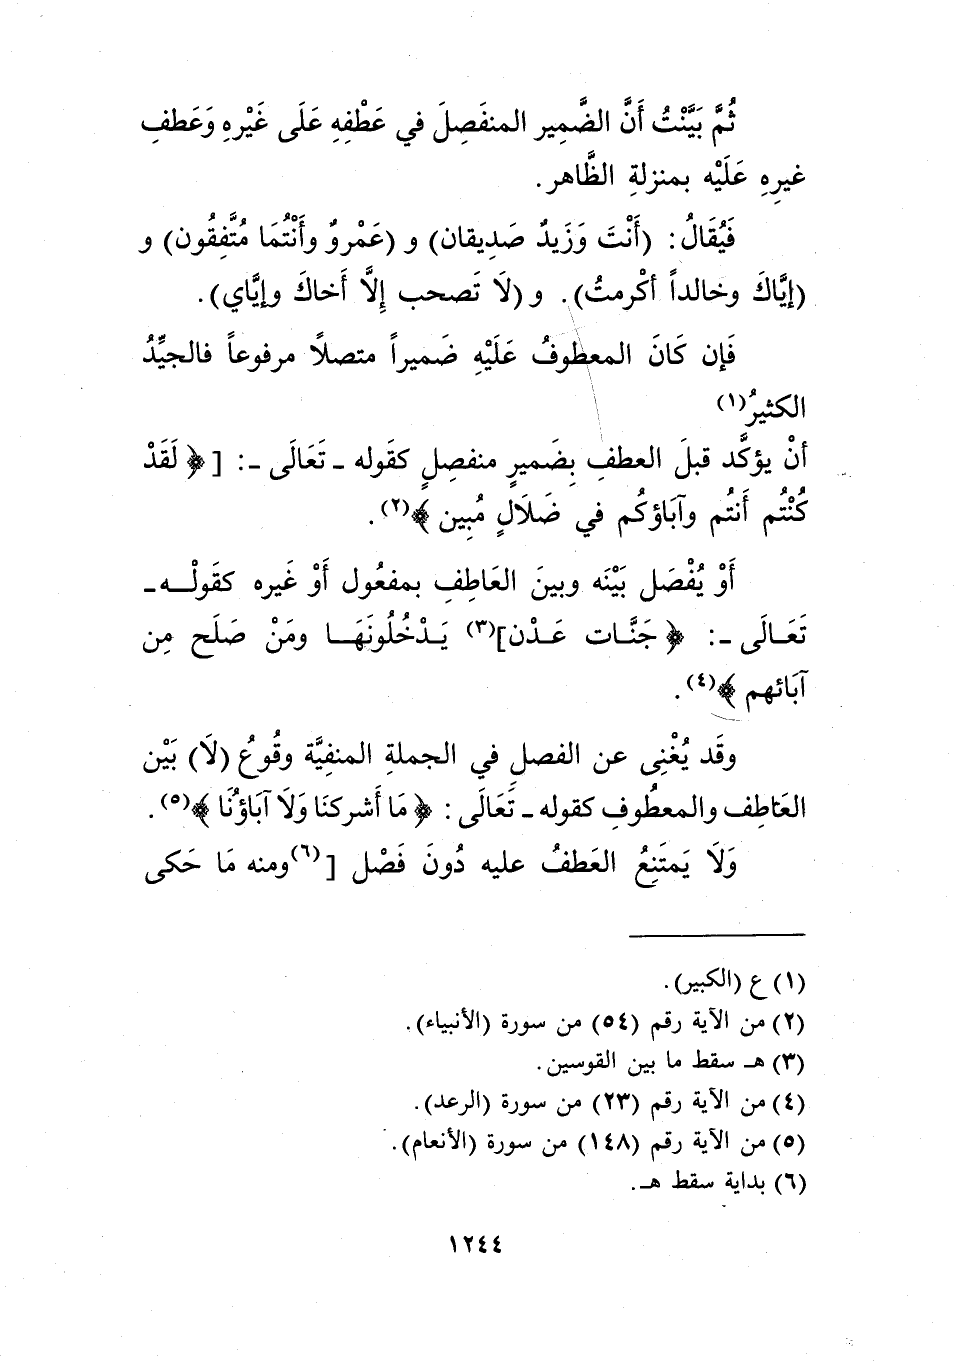 ثُمَّ بَيَّنْتُ أَنَّ الضَّمِير المنفَصِلَ في عَطْفِهِ عَلَى غَيْرِهِ وَعَطفِ
غيرِهِ عَلَيْه بمنزلةِ الظَّاهر.
فَيُقَالُ: (أَنْتَ وَزَيدٌ صَدِيقان) و (عَمْروٌ وأَنْتُمَا مُتَّفِقُون) و
(إيَّاكَ وخالداً أكْرمتُ). و (لَا تَصحب إِلَّا أَخاكَ وإيَّاي).
فَإن كَانَ المعطوفُ عَلَيْهِ ضَميراً متصلاً مرفوعاً فالجيِّدُ
الكثيرُ(١)
أنْ يؤكَّد قبلَ العطفِ بِضَميرٍ منفصلٍ كقَوله ـ تَعَالَى ـ: [﴿ لَقَدْ
كُنْتُم أَنتُم وآبَاؤكُم في ضَلَالٍ مُبِين ﴾(٢).
أَوْ يُفْصَل بَيْنَه وبينَ العَاطِفِ بمفعُول أَوْ غَيره كقَولْـــه ـ
تَعَـالَى ـ: ﴿ جَنَّـات عَـدْن](٣) يَـدْخُلُونَهَـــا ومَنْ صَلَح مِن
آبَائهم ﴾(٤).
وقَد يُغْنِى عن الفصلِ في الجملةِ المنفيَّة وقُوعُ (لَا) بَيْن
العَاطِف والمعطُوفِ كقوله ـ تَعَالَى: ﴿ مَا أَشركنَا وَلَا آبَاؤُنَا ﴾(٥).
وَلَا يَمتَنِعُ العَطفُ عليه دُونَ فَصْل [(٦)ومنه مَا حَكى
(١) ع (الكبير).
(٢) من الآية رقم (٥٤) من سورة (الأنبياء).
(٣) هـ سقط ما بين القوسين.
(٤) من الآية رقم (٢٣) من سورة (الرعد).
(٥) من الآية رقم (١٤٨) من سورة (الأنعام).
(٦) بداية سقط هـ.
١٢٤٤